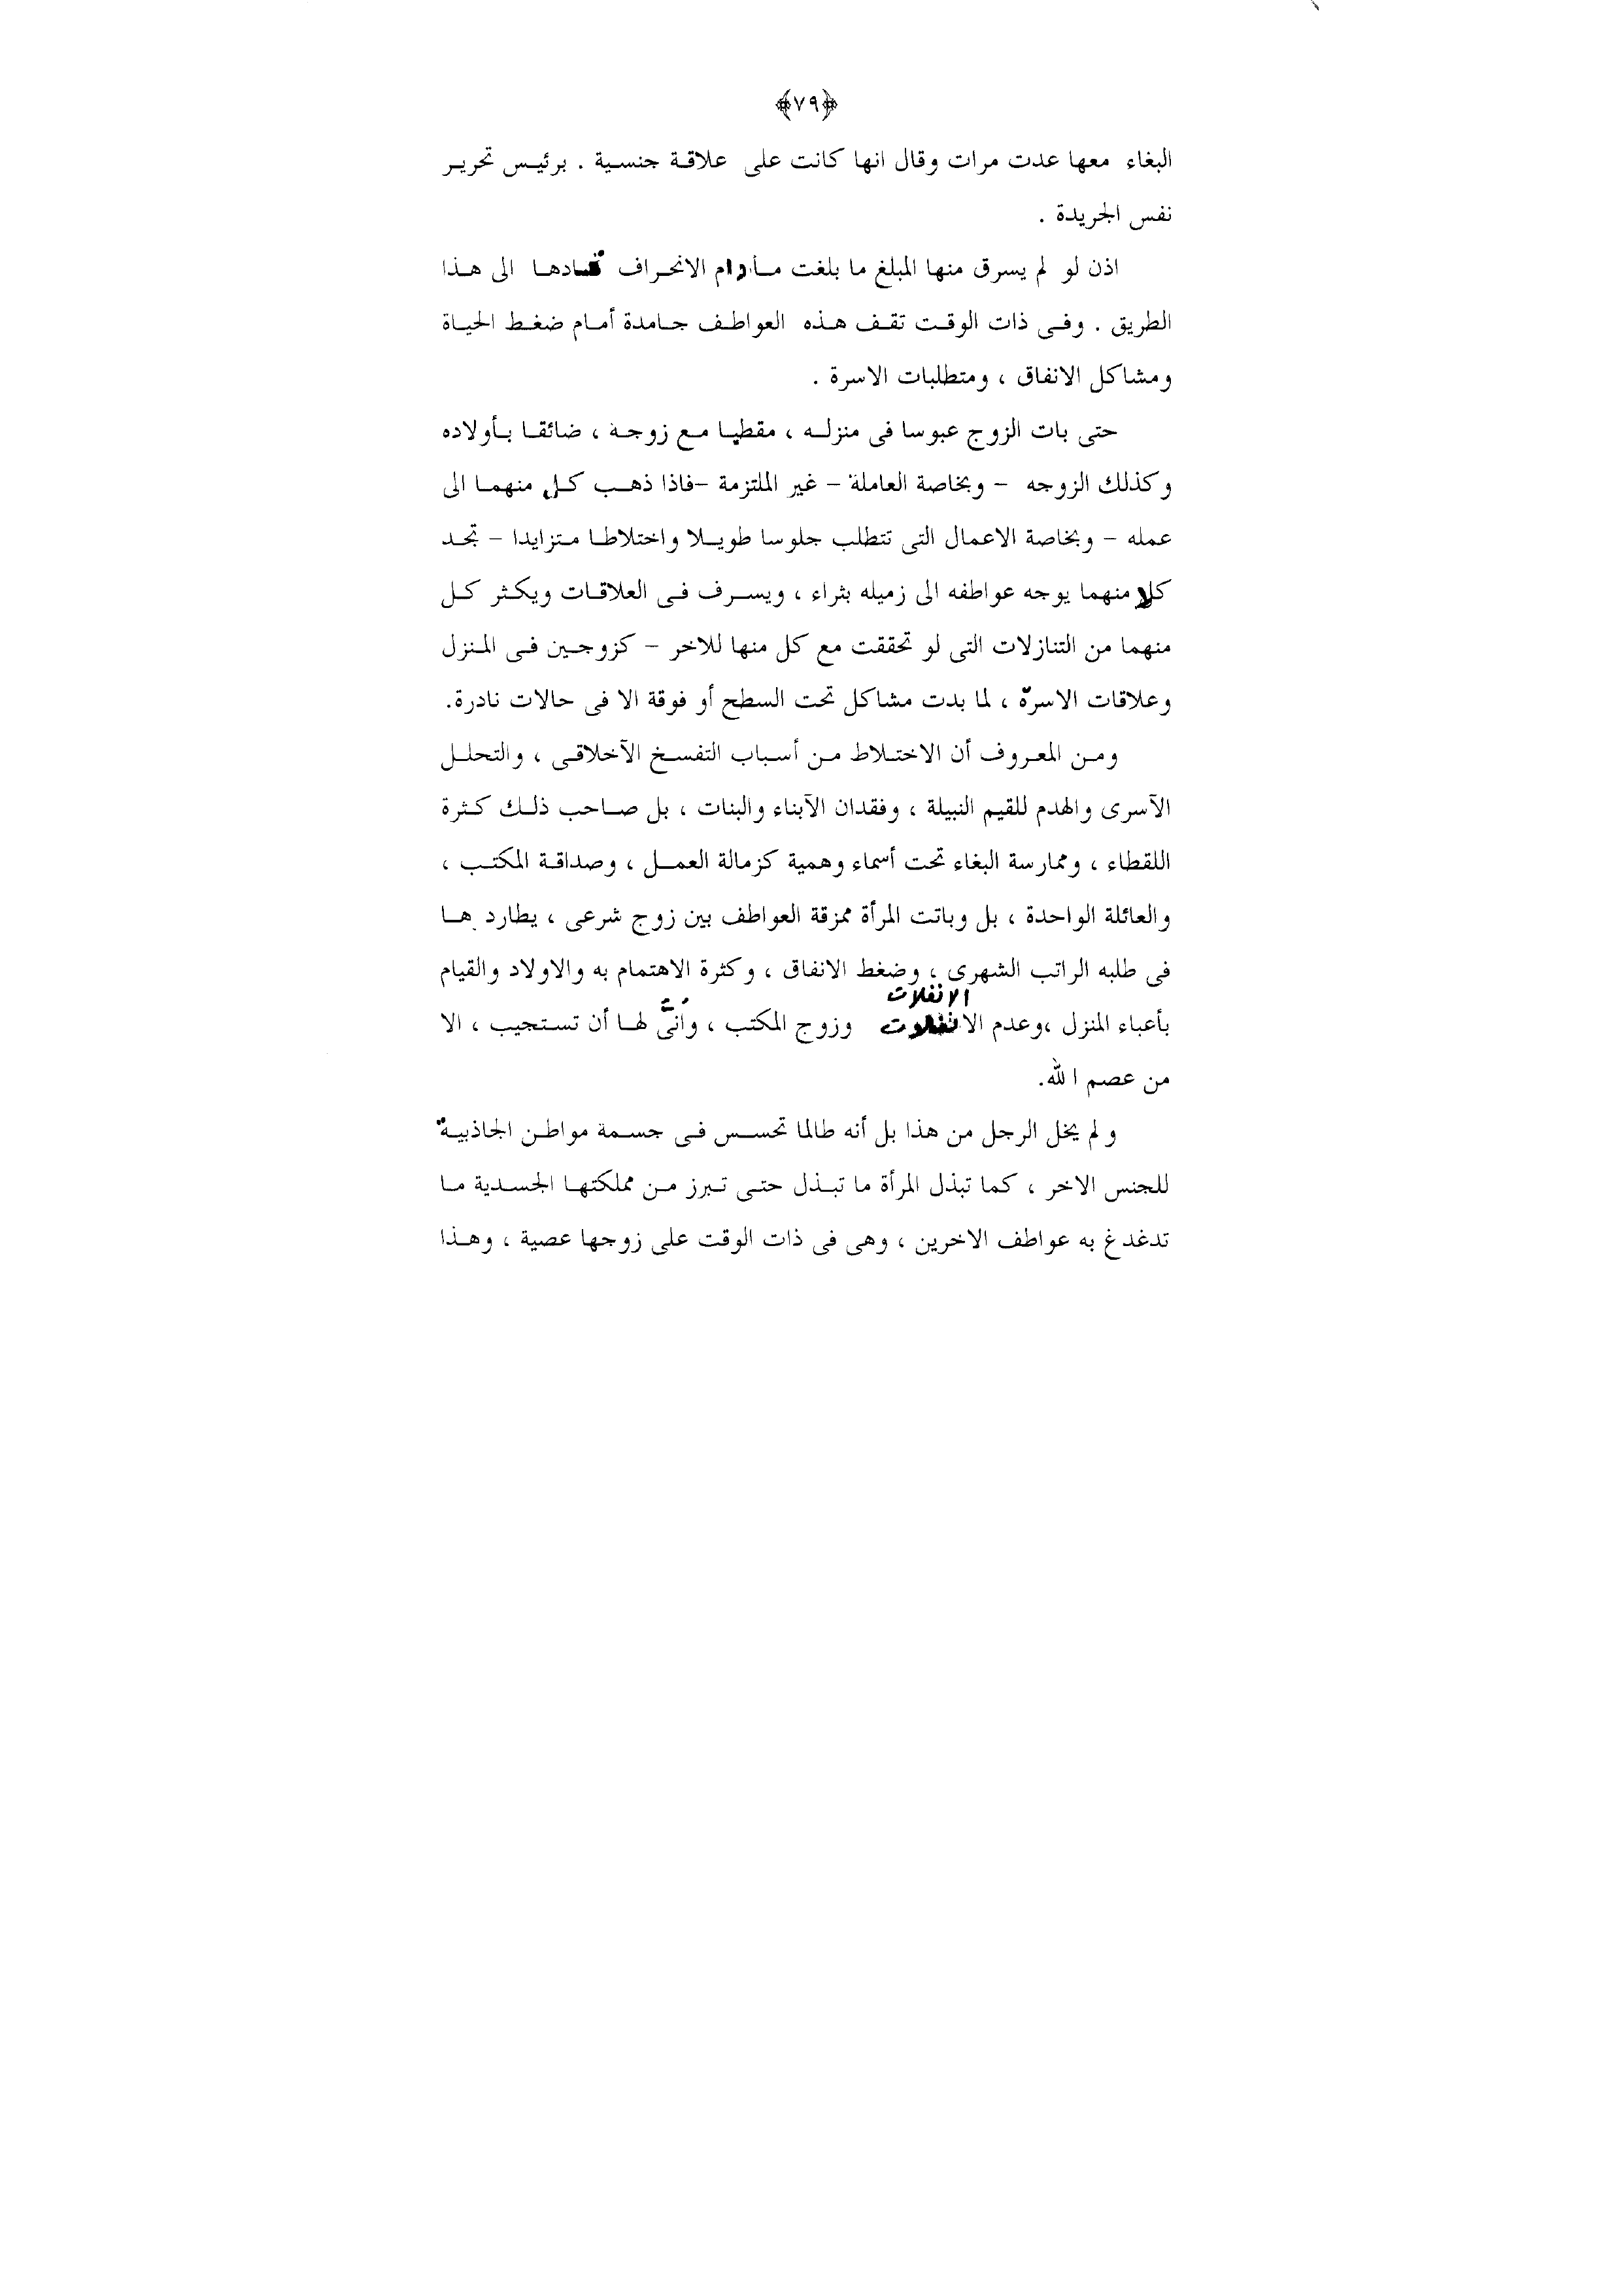 ﴿٧٩﴾
البغاء معها عدت مرات وقال انها كانت على علاقة جنسية . برئيس تحرير
نفس الجريدة .
اذن لو لم يسرق منها المبلغ ما بلغت مادام الانحراف قادها الى هذا
الطريق . وفى ذات الوقت تقف هذه العواطف جامدة أمام ضغط الحياة
ومشاكل الانفاق ، ومتطلبات الاسرة .
حتى بات الزوج عبوسا فى منزله ، مقطبا مع زوجة ، ضائقا بأولاده
وكذلك الزوجه – وبخاصة العاملة – غير الملتزمة –فاذا ذهب كل منهما الى
عمله – وبخاصة الاعمال التى تتطلب جلوسا طويلا واختلاطا متزايدا – تجد
كلا منهما يوجه عواطفه الى زميله بثراء ، ويسرف فى العلاقات ويكثر كل
منهما من التنازلات التى لو تحققت مع كل منها للاخر – كزوجين فى المنزل
وعلاقات الاسرة ، لما بدت مشاكل تحت السطح أو فوقة الا فى حالات نادرة.
ومن المعروف أن الاختلاط من أسباب التفسخ الآخلاقى ، والتحلل
الآسرى والهدم للقيم النبيلة ، وفقدان الآبناء والبنات ، بل صاحب ذلك كثرة
اللقطاء ، وممارسة البغاء تحت أسماء وهمية كزمالة العمل ، وصداقة المكتب ،
والعائلة الواحدة ، بل وباتت المرأة ممزقة العواطف بين زوج شرعى ، يطارد ها
فى طلبه الراتب الشهرى ، وضغط الانفاق ، وكثرة الاهتمام به والاولاد والقيام
الانفلات
بأعباء المنزل ،وعدم الانفلات وزوج المكتب ، وأنَّى لها أن تستجيب ، الا
من عصم الله.
ولم يخل الرجل من هذا بل أنه طالما تحسس فى جسمة مواطن الجاذبية
للجنس الاخر ، كما تبذل المرأة ما تبذل حتى تبرز من مملكتها الجسدية ما
تدغدغ به عواطف الاخرين ، وهى فى ذات الوقت على زوجها عصية ، وهذا